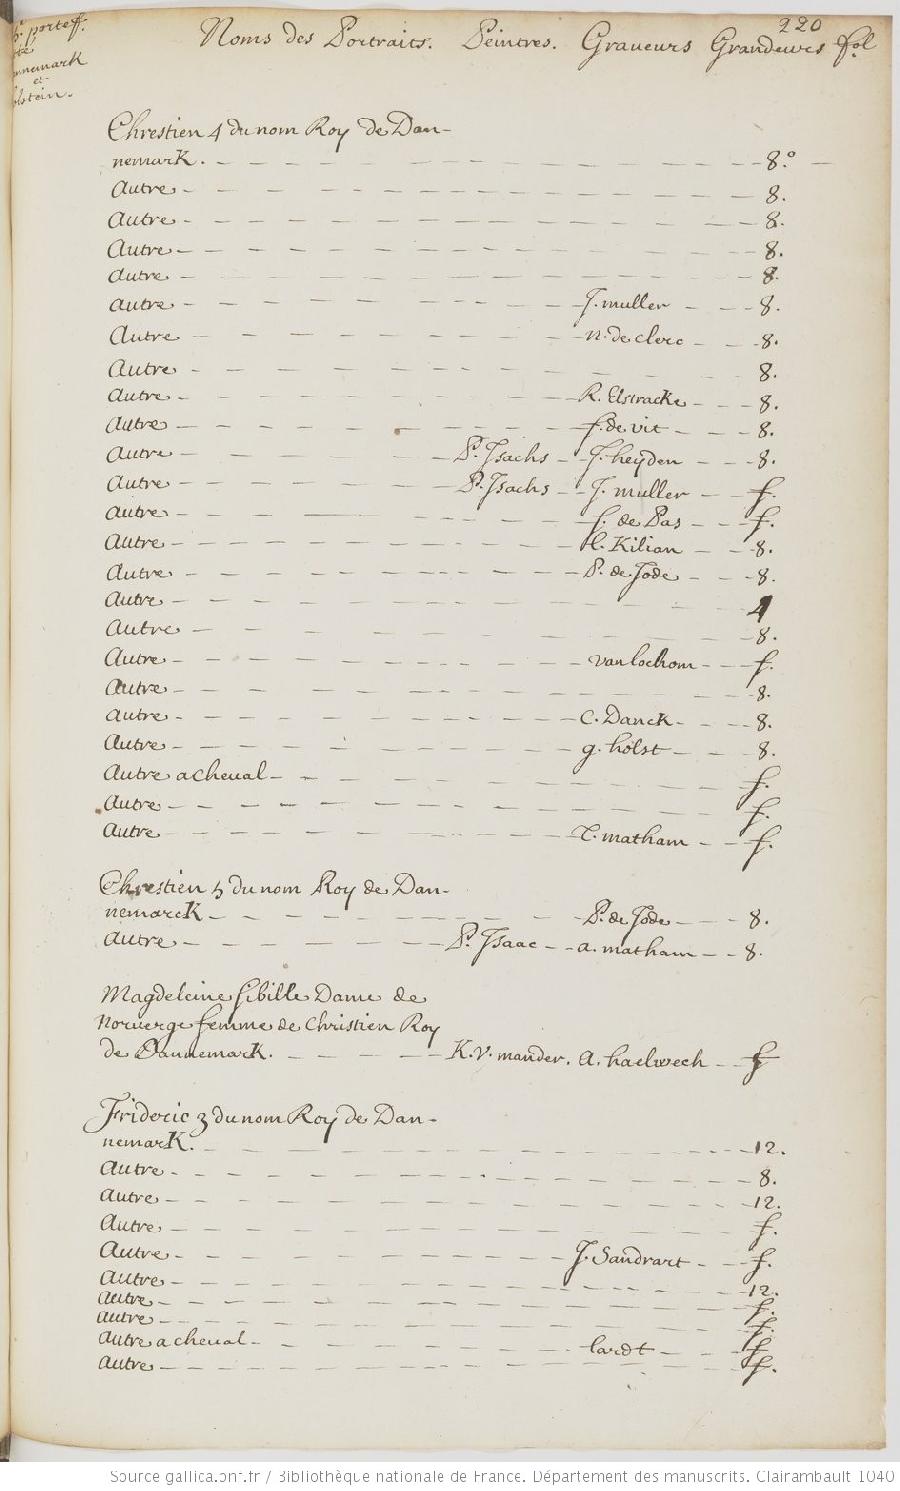 220
portef.
Noms des Portraits. Peintres. Graveurs Grandeurs fol
Chrestien 4 du nom Roy de Dan-
nemark. 8.°
Autre 8.
Autre 8.
Autre 8.
Autre 8.
Autre J. muller 8.
Autre n. de clerc 8.
Autre 8.
Autre R. Elstracke 8.
Autre f. de vit 8.
Autre P. Isachs J. heyden 8.
Autre P. Isachs J. muller f.
Autre f. de Pas f.
Autre l. Kilian 8.
Autre P. de Jode 8.
Autre 4
Autre 8.
Autre van lochom f.
Autre 8.
Autre C. Danck 8.
Autre g. holst 8.
Autre a cheval f.
Autre f.
Autre T. matham f.
Chrestien 5 du nom Roy de Dan-
nemarck P. de Jode 8.
Autre P. Isaac a. matham 8.
Magdeleine sibille Dame de
Norverge femme de Christien Roy
de Dannemark. K. v. mander. A. haelwech f
Frideric 3 du nom Roy de Dan-
nemark. 12.
Autre 8.
Autre 12.
Autre f.
Autre J. Sandrart f.
Autre 12.
Autre f.
Autre f.
Autre a cheval lardt f.
Autre f.
Source gallica.bnf.fr / Bibliothèque nationale de France. Département des manuscrits. Clairambault 1040